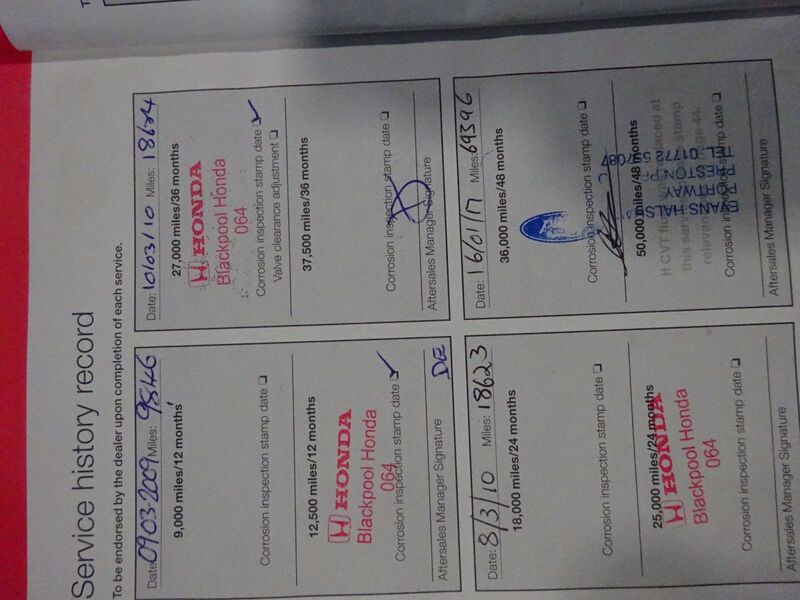 Service history record
To be endorsed by the dealer upon completion of each service.
Date: 0903-2009 Miles: 9546
9,000 miles/12 months
Corrosion inspection stamp date
12,500 miles/12 months
HONDA
Blackpool Honda
064
Corrosion inspection stamp date
Aftersales Manager Signature
DE
Date: 8/3/10 Miles: 18623
18,000 miles/24 months
Corrosion inspection stamp date
25,000 miles/24 months
HONDA
Blackpool Honda
064
Corrosion inspection stamp date
Aftersales Manager Signature
Date: 10/03/10 Miles: 18624
27,000 miles/36 months
HONDA
Blackpool Honda
064
Corrosion inspection stamp date
Valve clearance adjustment
37,500 miles/36 months
Corrosion inspection stamp date
Aftersales Manager Signature
Date: 16/01/17 Miles: 69396
36,000 miles/48 months
Corrosion inspection stamp date
50,000 miles/48 months
If CVT at
this stamp
relevant 44.
EVANS HALS
PORTWAY
PRESTON
TEL. 01772
Corrosion inspection stamp date
Aftersales Manager Signature